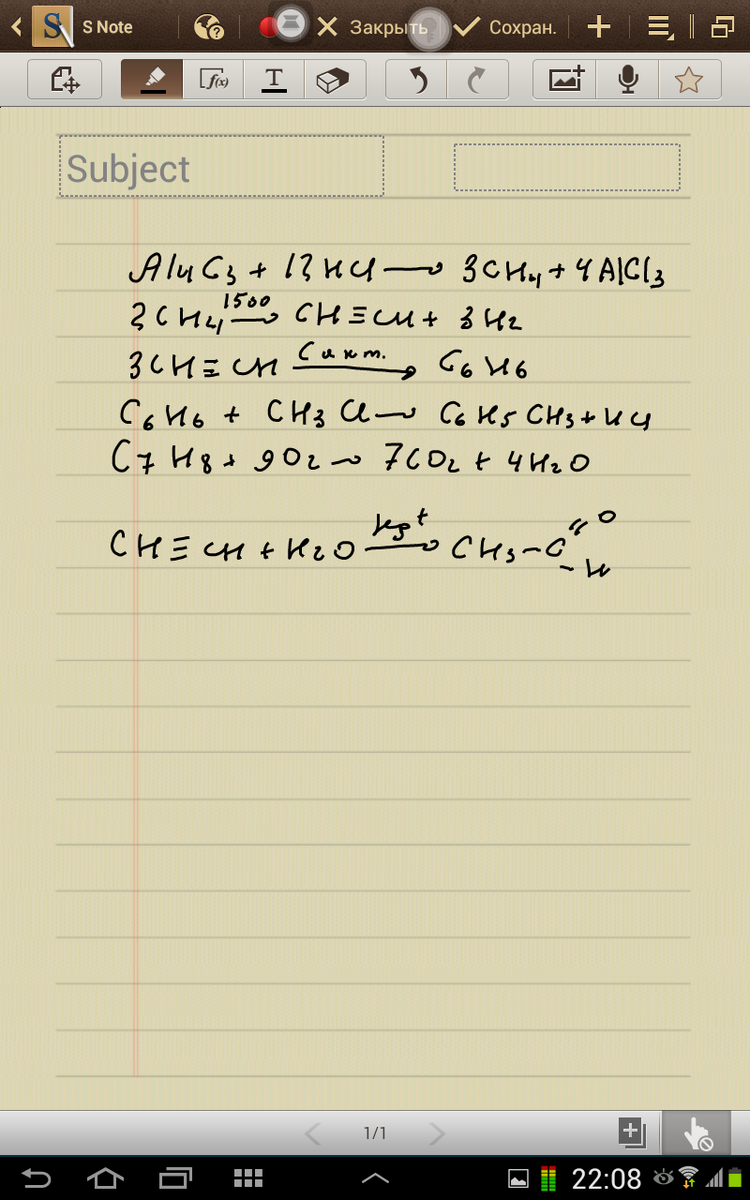 S Note Закрыть Сохран.
f(x) T
Subject
Al4C3 + 12HCl → 3CH4 + 4AlCl3
1500
2CH4 → CH≡CH + 3H2
C акт.
3CH≡CH → C6H6
C6H6 + CH3Cl → C6H5CH3 + HCl
C7H8 + 9O2 → 7CO2 + 4H2O
O
CH≡CH + H2O → CH3-C
-H
1/1
22:08